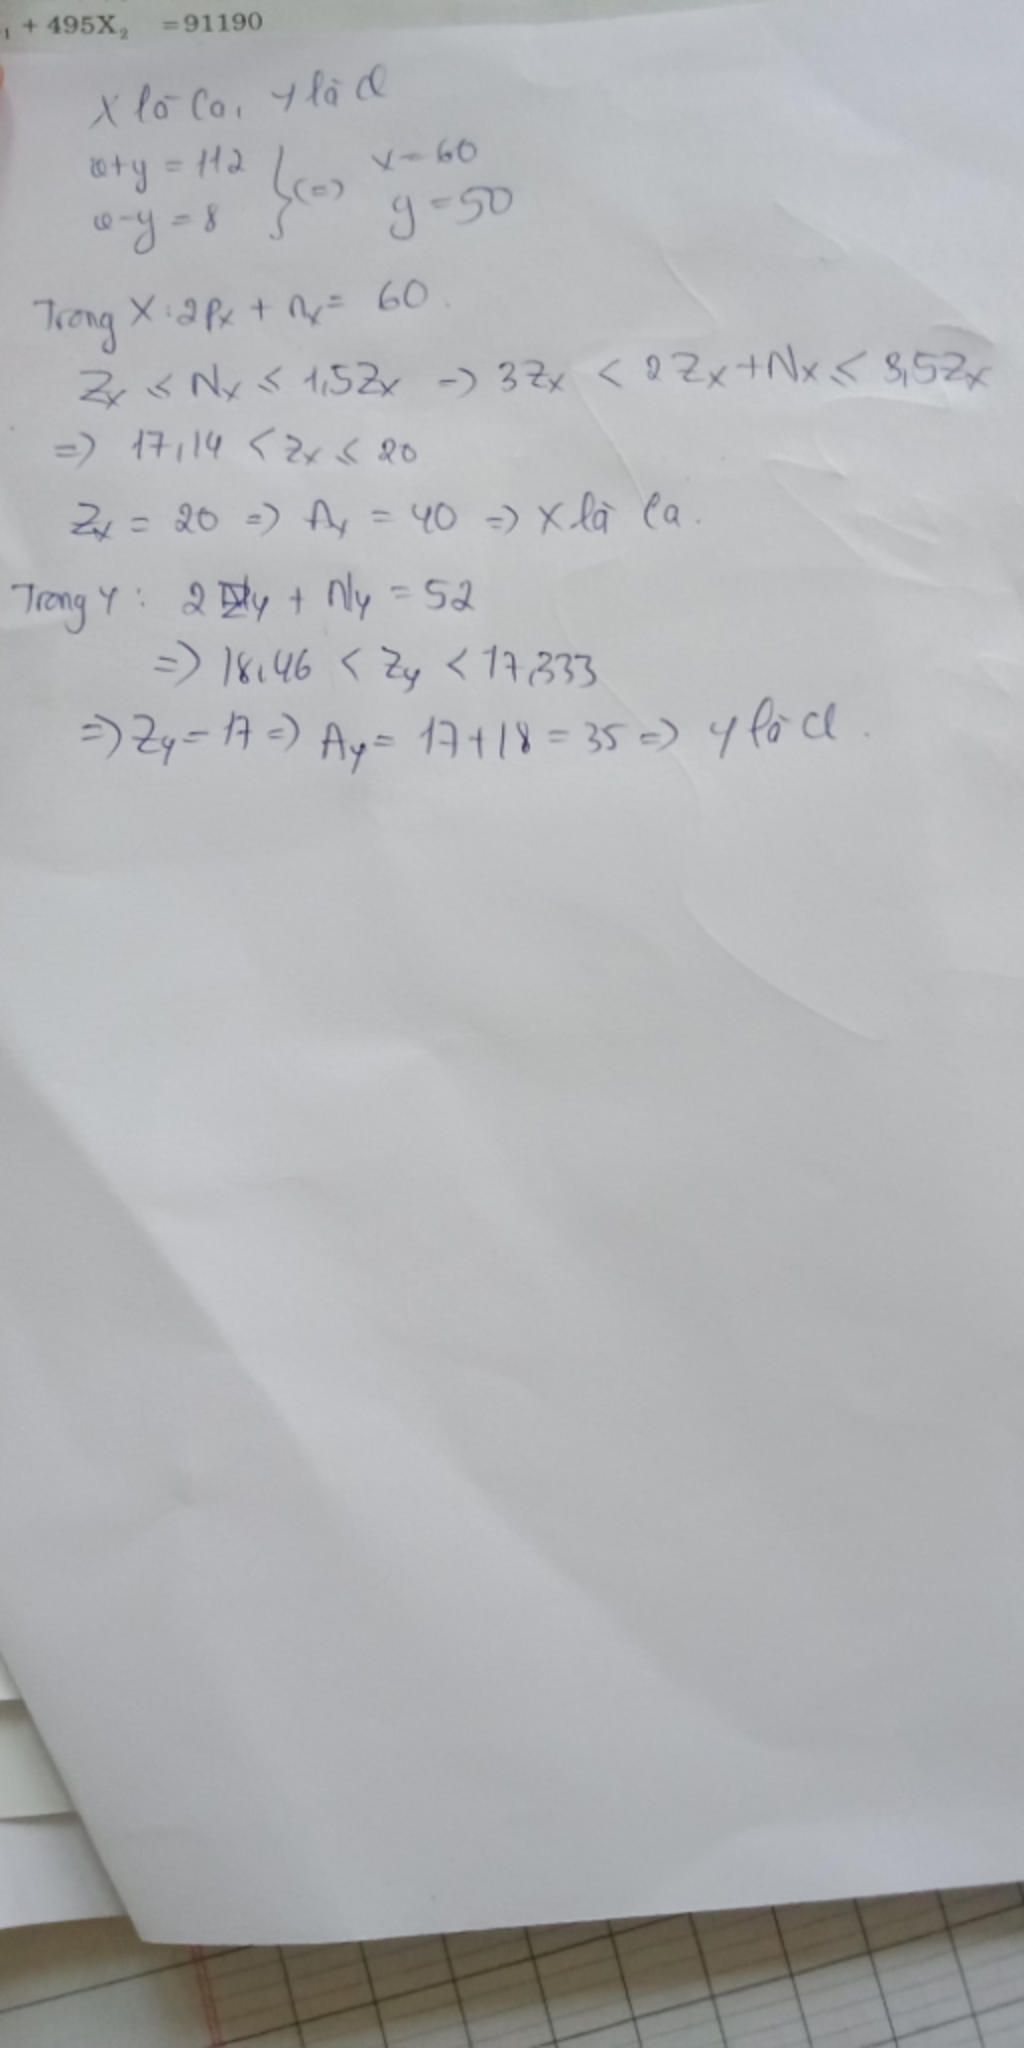 ₁ + 495X₂ = 91190
X là Ca, Y là Cl
x+y = 112 } (=) x=60
x-y = 8 y=50
Trong X: 2Px + nx = 60.
Zx ≤ Nx ≤ 1,5Zx => 3Zx < 2Zx+Nx ≤ 3,5Zx
=> 17,14 < Zx ≤ 20
Zx = 20 => Ax = 40 => X là Ca.
Trong Y: 2Zy + Ny = 52
=> 18,46 < Zy < 17,333
=> Zy = 17 => Ay = 17+18 = 35 => Y là Cl.